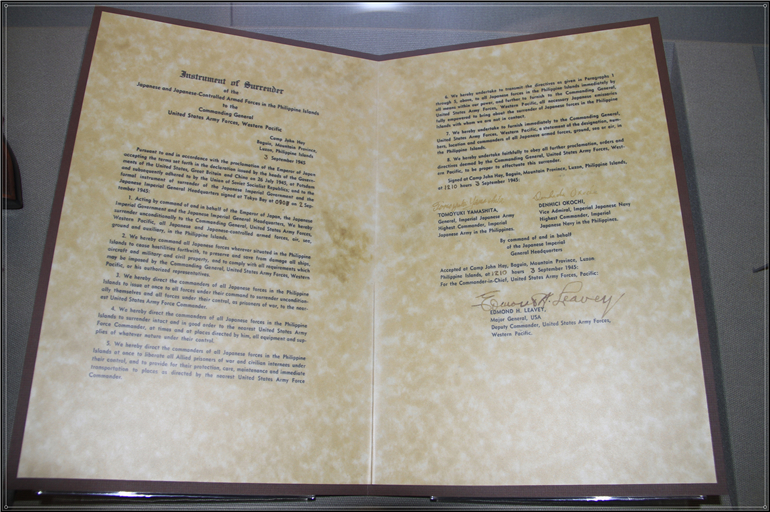 Instrument of Surrender
of the
Japanese and Japanese-Controlled Armed Forces in the Philippine Islands
to the
Commanding General
United States Army Forces, Western Pacific
Camp John Hay
Baguio, Mountain Province,
Luzon, Philippine Islands
3 September 1945
Pursuant to and in accordance with the proclamation of the Emperor of Japan
accepting the terms set forth in the declaration issued by the heads of the Govern-
ments of the United States, Great Britain and China on 26 July 1945, at Potsdam
and subsequently adhered to by the Union of Soviet Socialist Republics; and to the
formal instrument of surrender of the Japanese Imperial Government and the
Japanese Imperial General Headquarters signed at Tokyo Bay at 0908 on 2 Sep-
tember 1945:
1. Acting by command of and in behalf of the Emperor of Japan, the Japanese
Imperial Government and the Japanese Imperial General Headquarters, We hereby
surrender unconditionally to the Commanding General, United States Army Forces,
Western Pacific, all Japanese and Japanese-controlled armed forces, air, sea,
ground and auxiliary, in the Philippine Islands.
2. We hereby command all Japanese forces wherever situated in the Philippine
Islands to cease hostilities forthwith, to preserve and save from damage all ships,
aircraft and military and civil property, and to comply with all requirements which
may be imposed by the Commanding General, United States Army Forces, Western
Pacific, or his authorized representatives.
3. We hereby direct the commanders of all Japanese forces in the Philippine
Islands to issue at once to all forces under their command to surrender uncondition-
ally themselves and all forces under their control, as prisoners of war, to the near-
est United States Army Force Commander.
4. We hereby direct the commanders of all Japanese forces in the Philippine
Islands to surrender intact and in good order to the nearest United States Army
Force Commander, at times and at places directed by him, all equipment and sup-
plies of whatever nature under their control.
5. We hereby direct the commanders of all Japanese forces in the Philippine
Islands at once to liberate all Allied prisoners of war and civilian internees under
their control, and to provide for their protection, care, maintenance and immediate
transportation to places as directed by the nearest United States Army Force
Commander.
6. We hereby undertake to transmit the directives as given in Paragraphs 1
through 5, above, to all Japanese forces in the Philippine Islands immediately by
all means within our power, and further to furnish to the Commanding General,
United States Army Forces, Western Pacific, all necessary Japanese emissaries
fully empowered to bring about the surrender of Japanese forces in the Philippine
Islands with whom we are not in contact.
7. We hereby undertake to furnish immediately to the Commanding General,
United States Army Forces, Western Pacific, a statement of the designation, num-
bers, location and commanders of all Japanese armed forces, ground, sea or air, in
the Philippine Islands.
8. We hereby undertake faithfully to obey all further proclamation, orders and
directives deemed by the Commanding General, United States Armed Forces, West-
ern Pacific, to be proper to effectuate this surrender.
Signed at Camp John Hay, Baguio, Mountain Province, Luzon, Philippine Islands,
at 1210 hours 3 September 1945:
TOMOYUKI YAMASHITA, DENHICI OKOCHI,
General, Imperial Japanese Army Vice Admiral, Imperial Japanese Navy
Highest Commander, Imperial Highest Commander, Imperial
Japanese Army in the Philippines. Japanese Navy in the Philippines.
By command of and in behalf
of the Japanese Imperial
General Headquarters
Accepted at Camp John Hay, Baguio, Mountain Province, Luzon
Philippine Islands, at 1210 hours 3 September 1945:
For the Commander-in-Chief, United States Army Forces, Pacific:
Edmond H. Leavey
EDMOND H. LEAVEY,
Major General, USA
Deputy Commander, United States Army Forces,
Western Pacific.